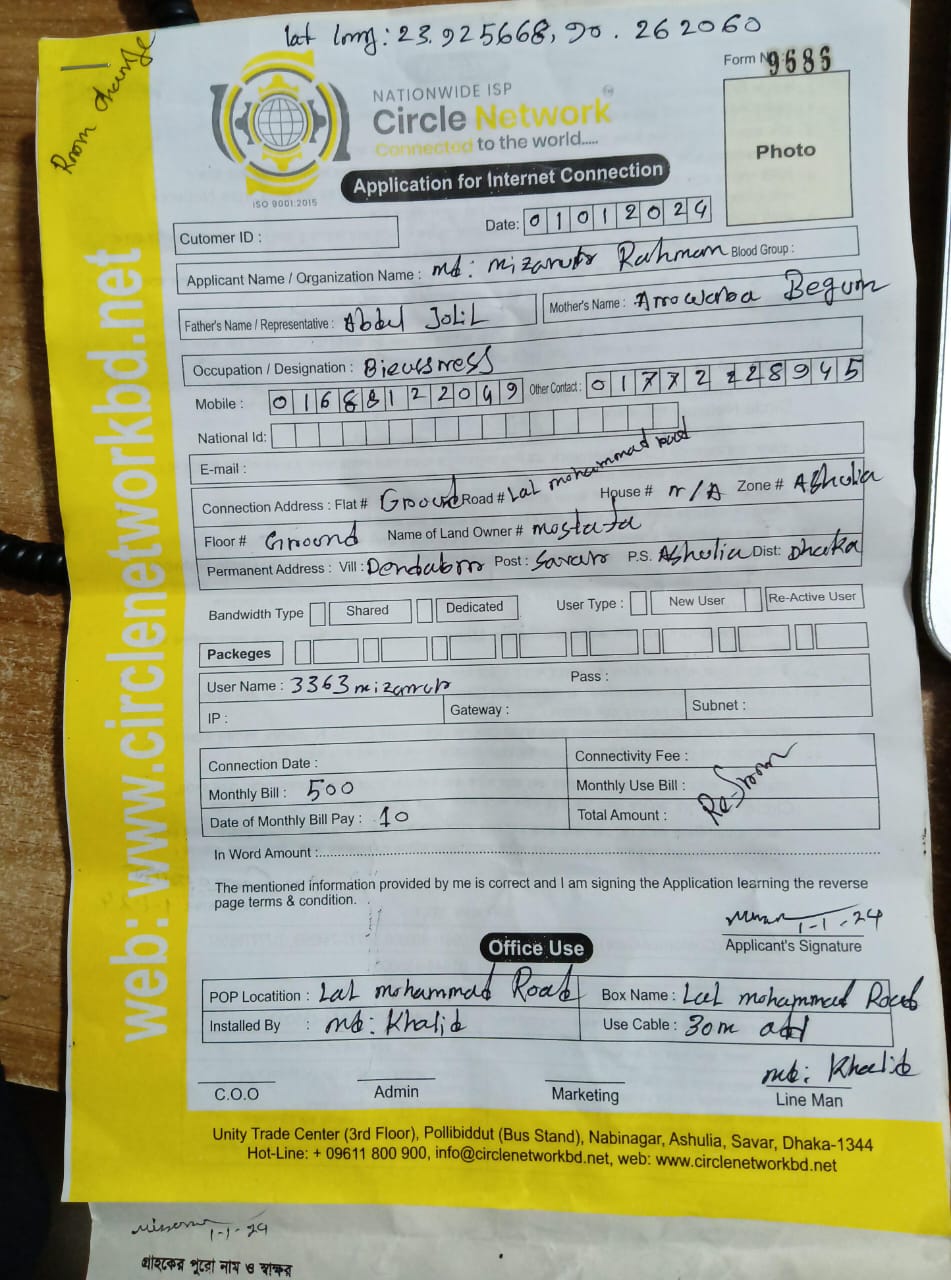 lat long: 23.925668, 90.262060
Room change
Form N 9686
NATIONWIDE ISP
Circle Network
Connected to the world.....
ISO 9001:2015
Application for Internet Connection
Photo
Cutomer ID :
Date: 01012024
Applicant Name / Organization Name : md: mizanur Rahman Blood Group :
Father's Name / Representative : Abdul Jolil
Mother's Name : Begum
Occupation / Designation :
Mobile : 01688122049 Other Contact : 01772228945
National Id:
E-mail :
Connection Address : Flat # Ground Road # Lal mohammad road House # n/A Zone # Ashulia
Floor # Ground Name of Land Owner # mostafa
Permanent Address : Vill : Dendabor Post : Savar P.S. Ashulia Dist: Dhaka
Bandwidth Type Shared Dedicated User Type : New User Re-Active User
Packeges
User Name : 3363mizanur Pass :
IP : Gateway : Subnet :
Connection Date : Connectivity Fee :
Monthly Bill : 500 Monthly Use Bill :
Date of Monthly Bill Pay : 10 Total Amount :
In Word Amount :
The mentioned information provided by me is correct and I am signing the Application learning the reverse
page terms & condition.
1-1-24
Applicant's Signature
Office Use
POP Locatition : Lal mohammad Road Box Name : Lal mohammad Road
Installed By : md: Khalid Use Cable : 30m add
md: Khalid
C.O.O Admin Marketing Line Man
Unity Trade Center (3rd Floor), Pollibiddut (Bus Stand), Nabinagar, Ashulia, Savar, Dhaka-1344
Hot-Line: + 09611 800 900, info@circlenetworkbd.net, web: www.circlenetworkbd.net
web: www.circlenetworkbd.net
1-1-24
গ্রাহকের পুরো নাম ও স্বাক্ষর